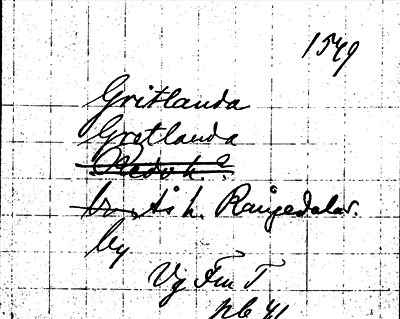 1549
Gritlanda
Grotlanda
Redv h?
br, Ås h. Rångedala s.
by
Vg Fm T
nb 41